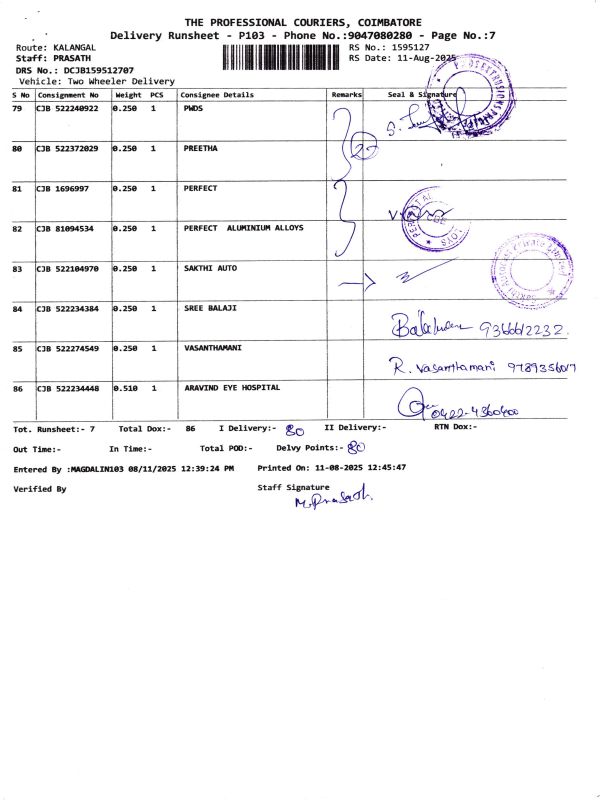 THE PROFESSIONAL COURIERS, COIMBATORE
Delivery Runsheet - P103 - Phone No.:9047080280 - Page No.:7
Route: KALANGAL RS No.: 1595127
Staff: PRASATH RS Date: 11-Aug-2025
DRS No.: DCJB159512707
Vehicle: Two Wheeler Delivery
S No Consignment No Weight PCS Consignee Details Remarks Seal & Signature
79 CJB 522240922 0.250 1 PWDS
80 CJB 522372029 0.250 1 PREETHA
81 CJB 1696997 0.250 1 PERFECT
82 CJB 81094534 0.250 1 PERFECT ALUMINIUM ALLOYS
83 CJB 522104970 0.250 1 SAKTHI AUTO
84 CJB 522234384 0.250 1 SREE BALAJI
9366612232.
85 CJB 522274549 0.250 1 VASANTHAMANI
R. Vasanthamani 9789356017
86 CJB 522234448 0.510 1 ARAVIND EYE HOSPITAL
0422-4360400
Tot. Runsheet:- 7 Total Dox:- 86 I Delivery:- 80 II Delivery:- RTN Dox:-
Out Time:- In Time:- Total POD:- Delvy Points:- 80
Entered By :MAGDALIN103 08/11/2025 12:39:24 PM Printed On: 11-08-2025 12:45:47
Verified By Staff Signature
M. Prasath.